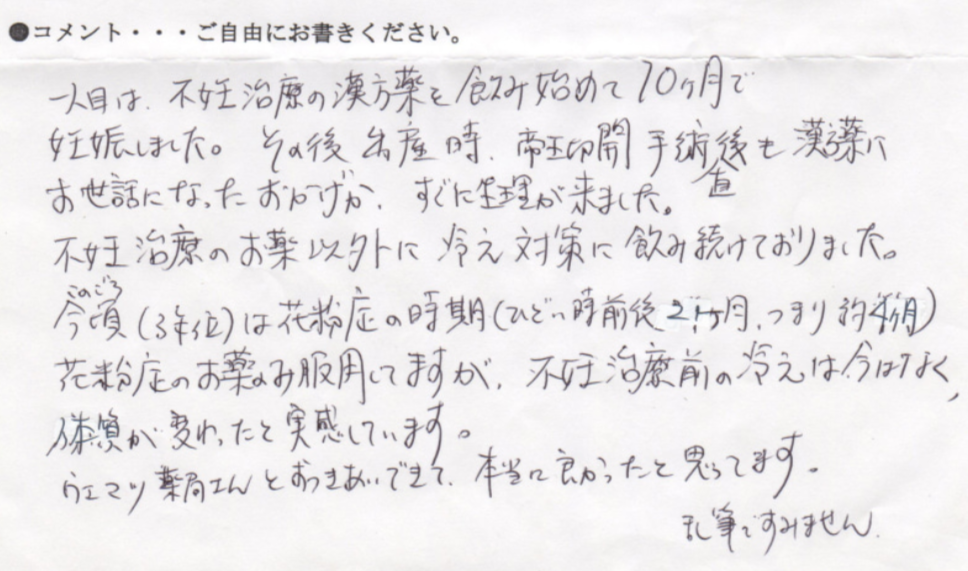 ●コメント・・・ご自由にお書きください。
一人目は、不妊治療の漢方薬を飲み始めて10ヶ月で
妊娠しました。その後出産時、帝王切開手術直後も漢方薬に
お世話になったおかげか、すぐに生理が来ました。
不妊治療のお薬以外に冷え対策に飲み続けておりました。
このごろ
今頃(3年位)は花粉症の時期(ひどい時前後2ヶ月、つまり約4ヶ月)
花粉症のお薬のみ服用してますが、不妊治療前の冷えは今はなく、
体質が変わったと実感しています。
ウエマツ薬局さんとおつきあいできて、本当に良かったと思ってます。
乱筆ですみません。